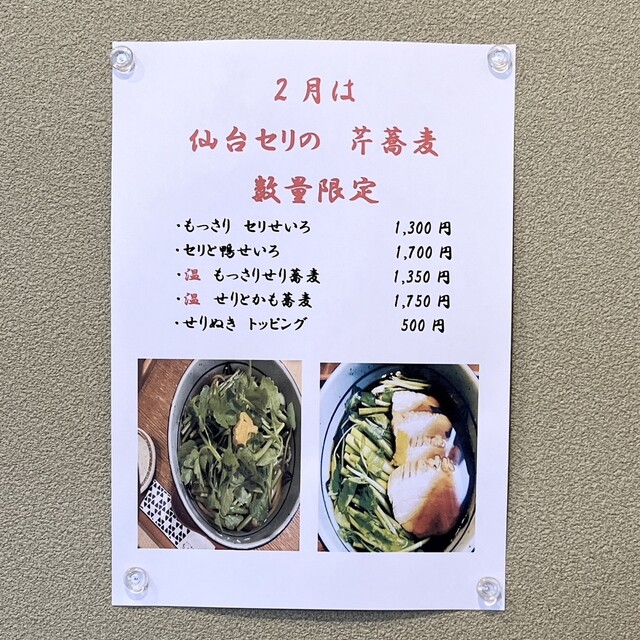 2月は
仙台セリの 芹蕎麦
数量限定
・もっさり セリせいろ 1,300 円
・セリと鴨せいろ 1,700 円
・温 もっさりせり蕎麦 1,350 円
・温 せりとかも蕎麦 1,750 円
・せりぬき トッピング 500 円